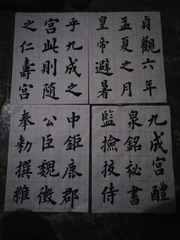 貞觀六年
孟夏之月
皇帝避暑
乎九成之
宮此則隨
之仁壽宮
九成宮醴
泉銘秘書
監撿挍侍
中鉅鹿郡
公臣魏徵
奉勑撰維